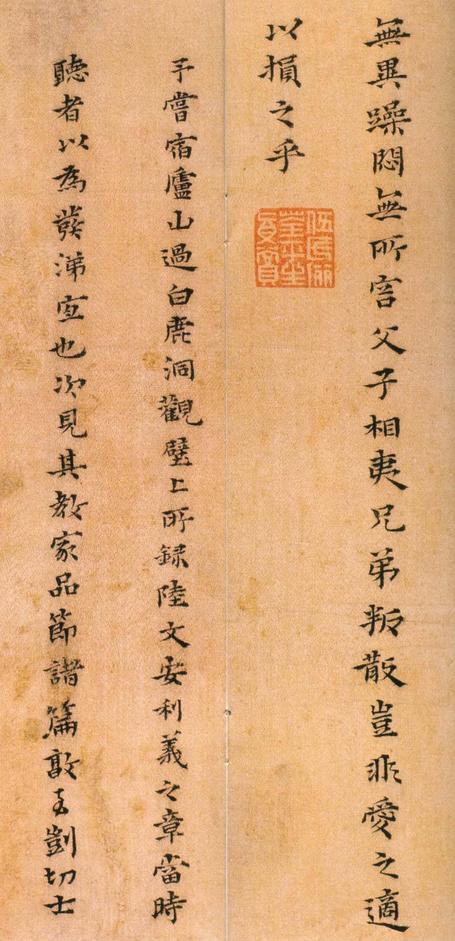 無異躁悶無所容父子相夷兄弟叛散豈非愛之適
以損之乎
予嘗宿廬山過白鹿洞觀壁上所録陸文安利義之章當時
聽者以為發涕宜也次見其教家品節諸篇敦玄剴切士